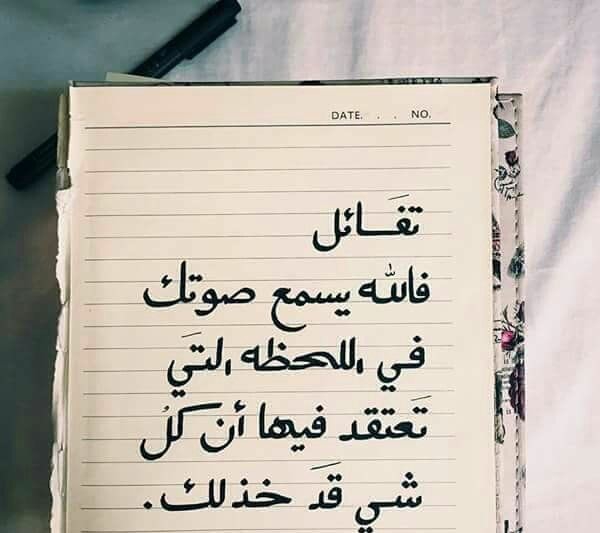 DATE. . . NO.
تفَـــائل
فالله يسمع صوتك
في اللحظه التيَ
تَعتقد فيها أن كلُ
شي قَد خذلك.